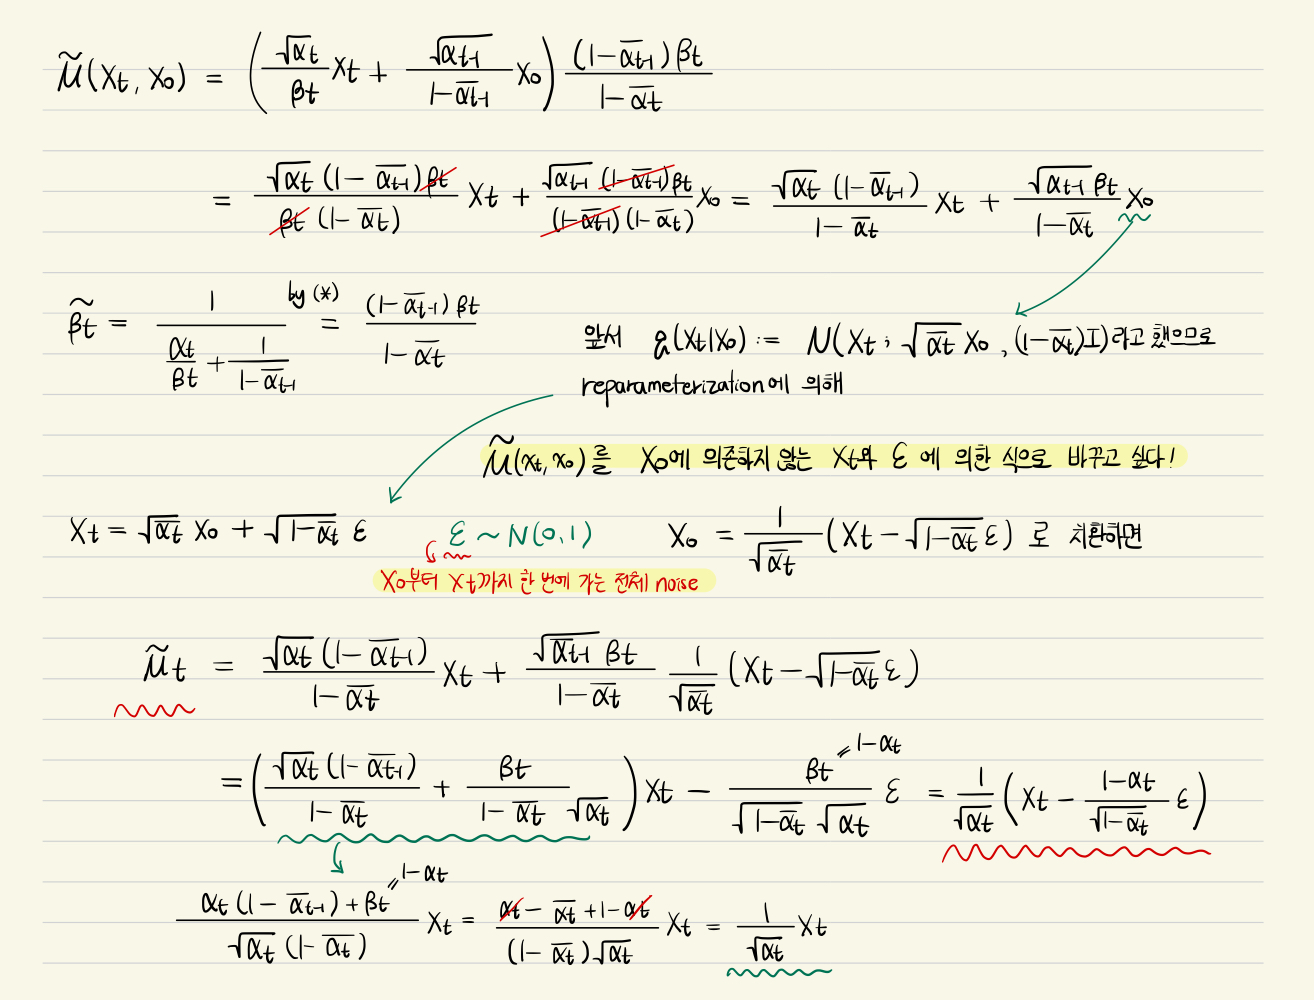 μ̃(Xt, X₀) = (√αt/βt Xt + √ᾱt-1/1-ᾱt-1 X₀) (1-ᾱt-1)βt/1-ᾱt
= √αt (1-ᾱt-1)βt/βt (1-ᾱt) Xt + √ᾱt-1 (1-ᾱt-1)βt/(1-ᾱt-1)(1-ᾱt) X₀ = √αt (1-ᾱt-1)/1-ᾱt Xt + √ᾱt-1 βt/1-ᾱt X₀
β̃t = 1/(αt/βt + 1/1-ᾱt-1) by (*) = (1-ᾱt-1) βt/1-ᾱt
앞서 q(Xt|X₀) := N(Xt; √ᾱt X₀, (1-ᾱt)I)라고 했으므로
reparameterization에 의해
μ̃(xt, x₀)를 X₀에 의존하지 않는 Xt와 ε에 의한 식으로 바꾸고 싶다!
Xt = √ᾱt X₀ + √1-ᾱt ε
ε ~ N(0,1)
X₀ = 1/√ᾱt (Xt - √1-ᾱt ε) 로 치환하면
X₀부터 Xt까지 한 번에 가는 전체 noise
μ̃t = √αt (1-ᾱt-1)/1-ᾱt Xt + √ᾱt-1 βt/1-ᾱt 1/√ᾱt (Xt - √1-ᾱt ε)
= (√αt (1-ᾱt-1)/1-ᾱt + βt/1-ᾱt √αt) Xt - βt = 1-αt/√1-ᾱt √αt ε = 1/√αt (Xt - 1-αt/√1-ᾱt ε)
αt (1-ᾱt-1) + βt = 1-αt/√αt (1-ᾱt) Xt = αt - ᾱt + 1 - αt/(1-ᾱt)√αt Xt = 1/√αt Xt